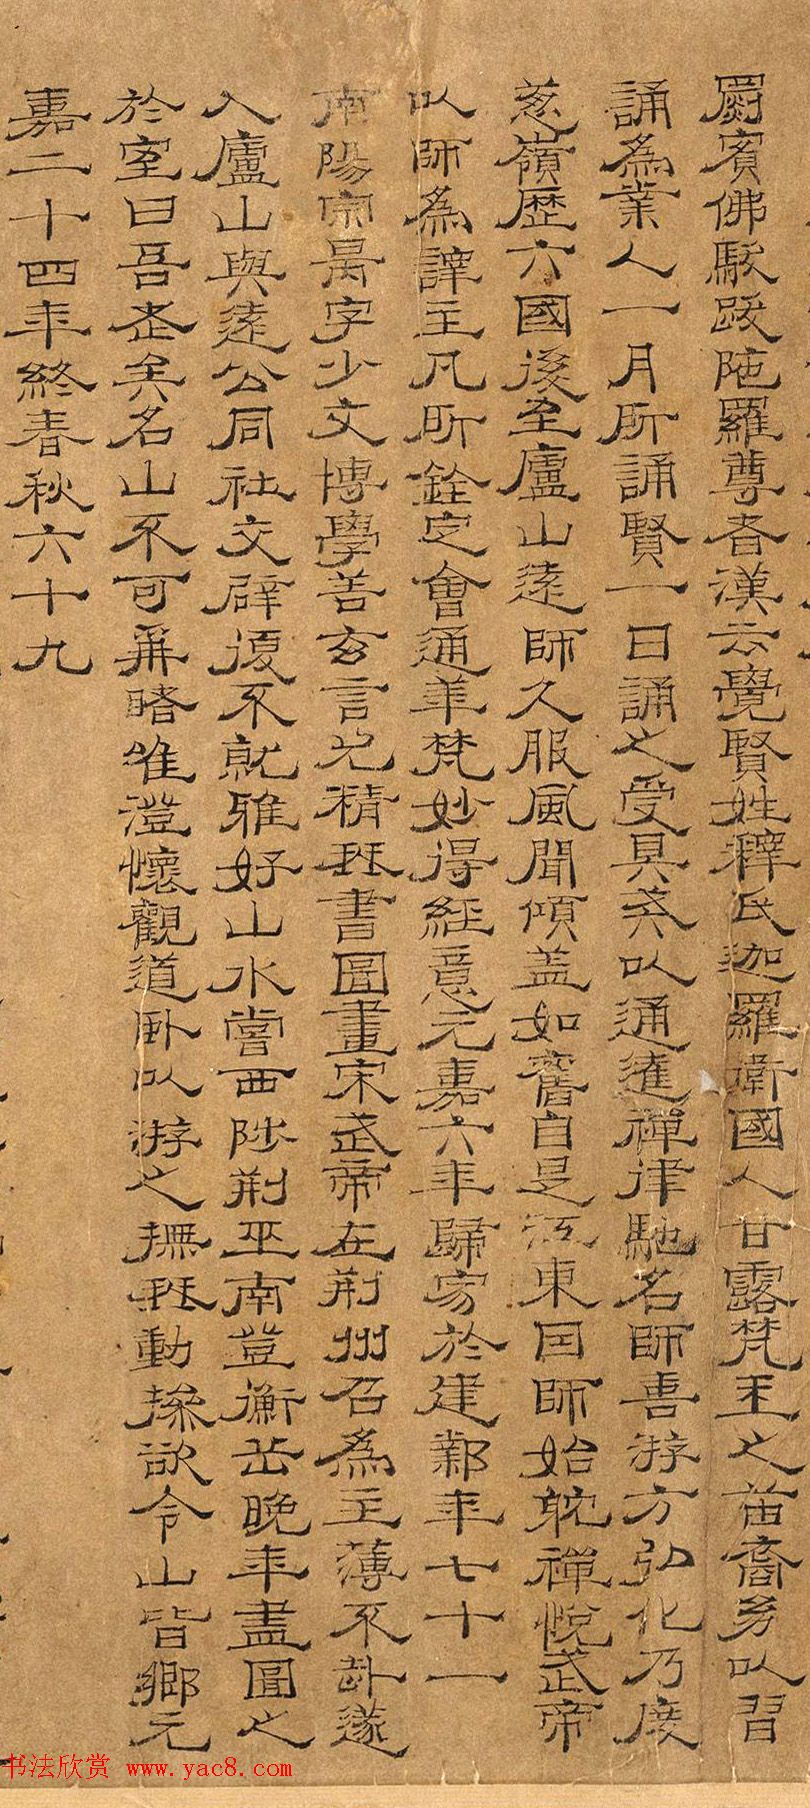 罽賓佛馱跋陁羅尊者漢云覺賢姓釋氏迦羅衛國人甘露梵王之苗裔㓜以習
誦為業人一月所誦賢一日誦之受具戒以通達禪律馳名師喜游方弘化乃度
葱嶺歷六國後至廬山遠師久服風聞傾蓋如舊自是江東國師始躭禪悅武帝
以師為譯主凡所銓定會通華梵妙得經意元嘉六年歸宗於建鄴年七十一
南陽宗昺字少文博學善玄言尤精琴書圖畫宋武帝在荊州召為主薄不赴遂
入廬山與遠公同社交辟復不就雅好山水嘗西陟荊巫南登衡岳晚年畫圖之
於室曰吾老矣名山不可再睹唯澄懷觀道臥以游之撫琴動操欲令山皆鄉元
嘉二十四年終春秋六十九
书法欣赏 www.yac8.com